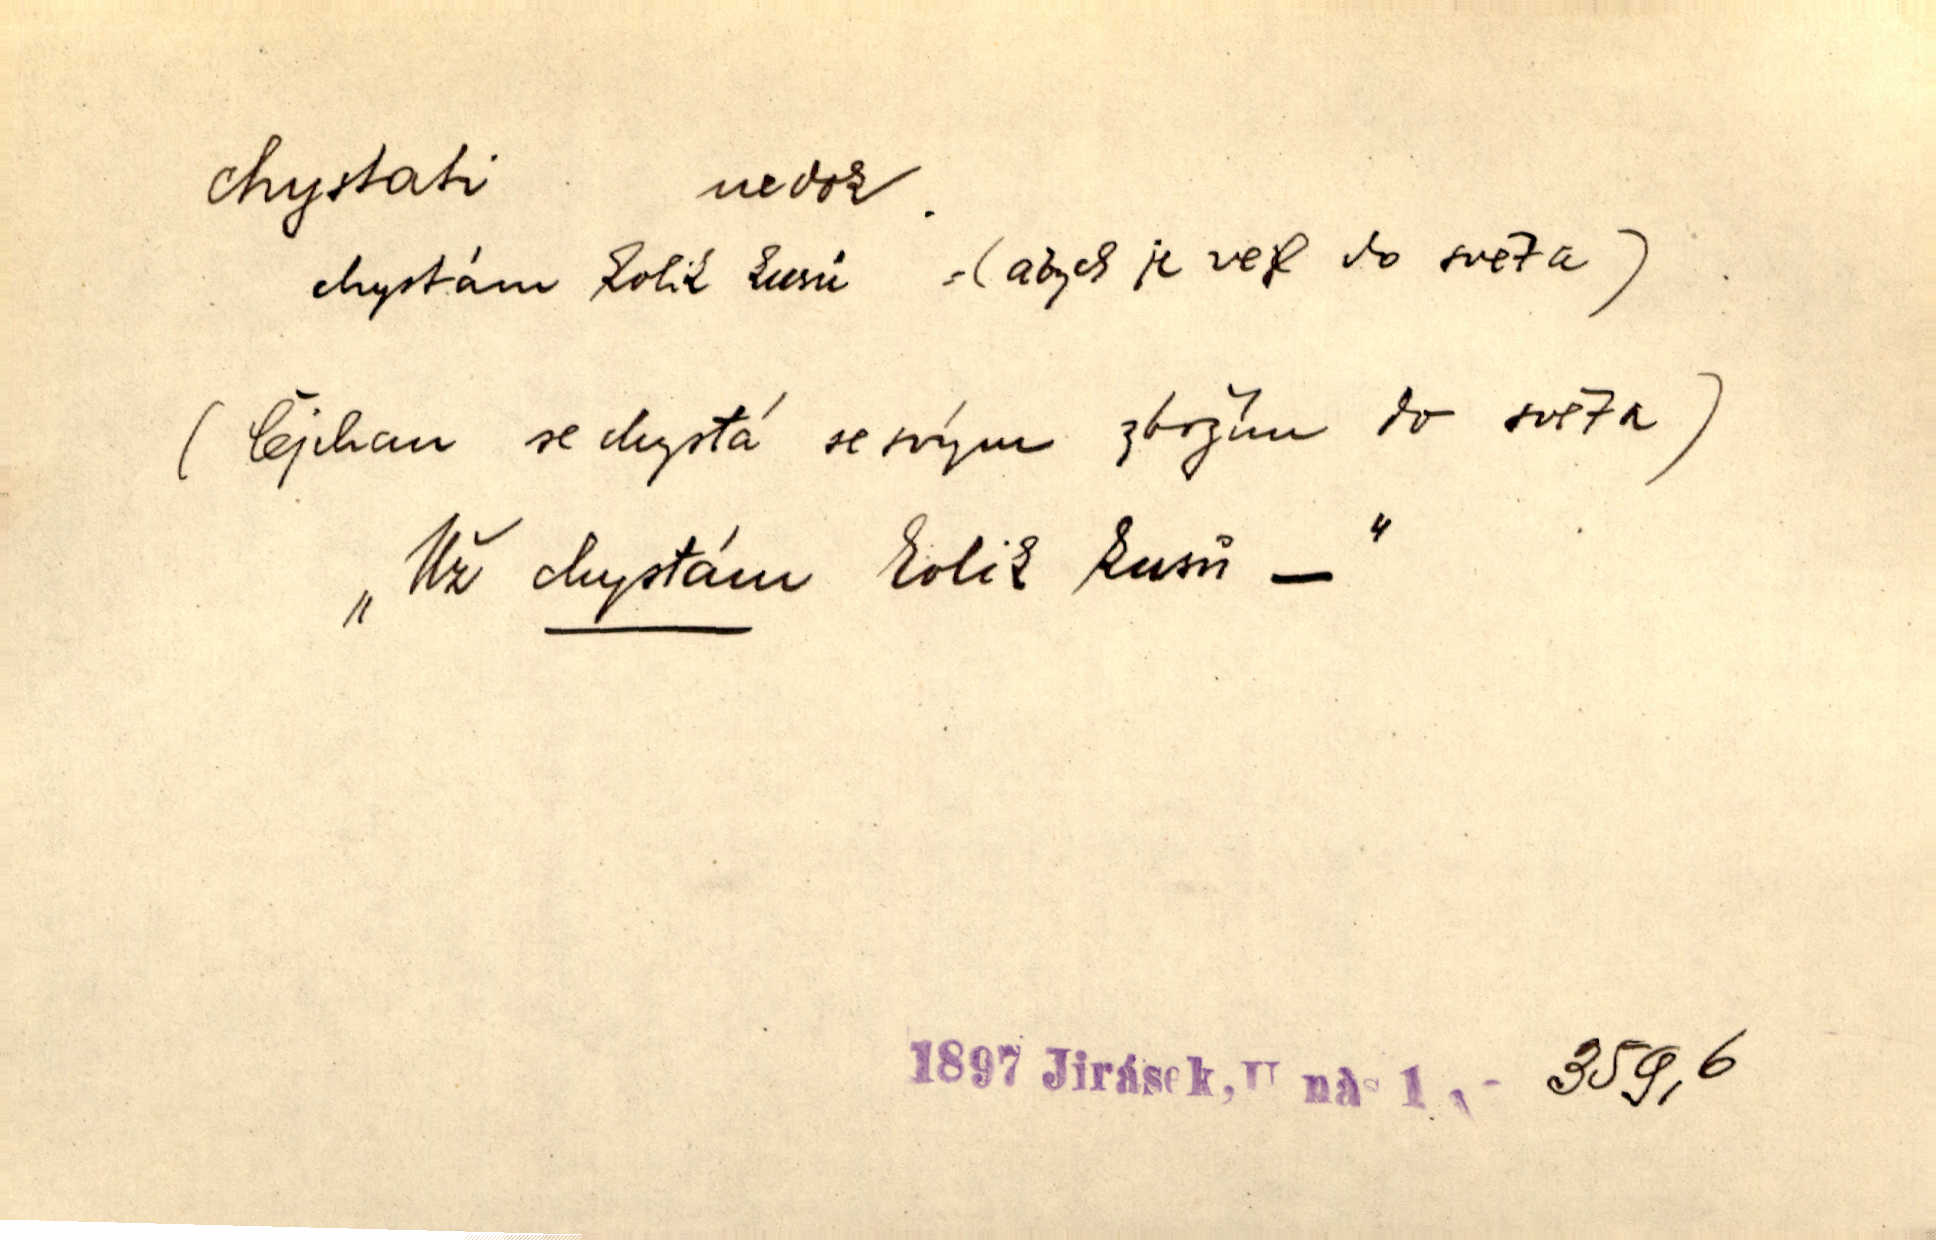 chystati nedok.
chystám kolik kusů =(abych je vezl do světa)
(Čejchan se chystá se svým zbožím do světa)
„Už chystám kolik kusů —“
1897 Jirásek, U nás 1 359,6